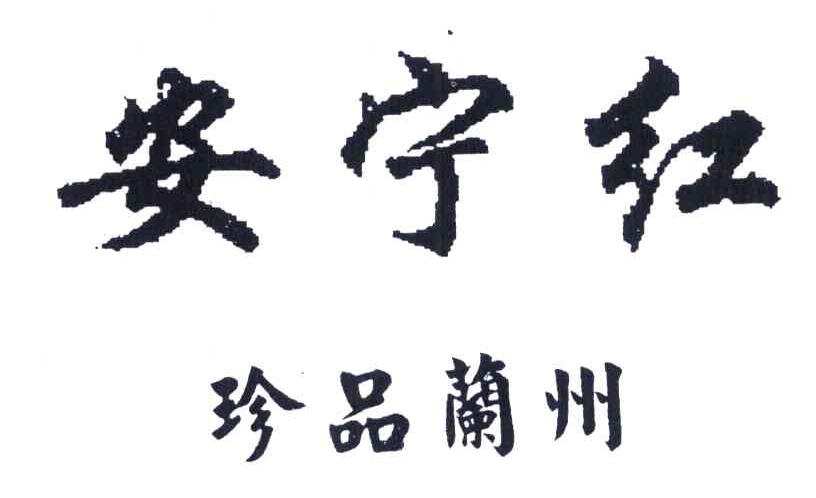 安宁红
珍品蘭州